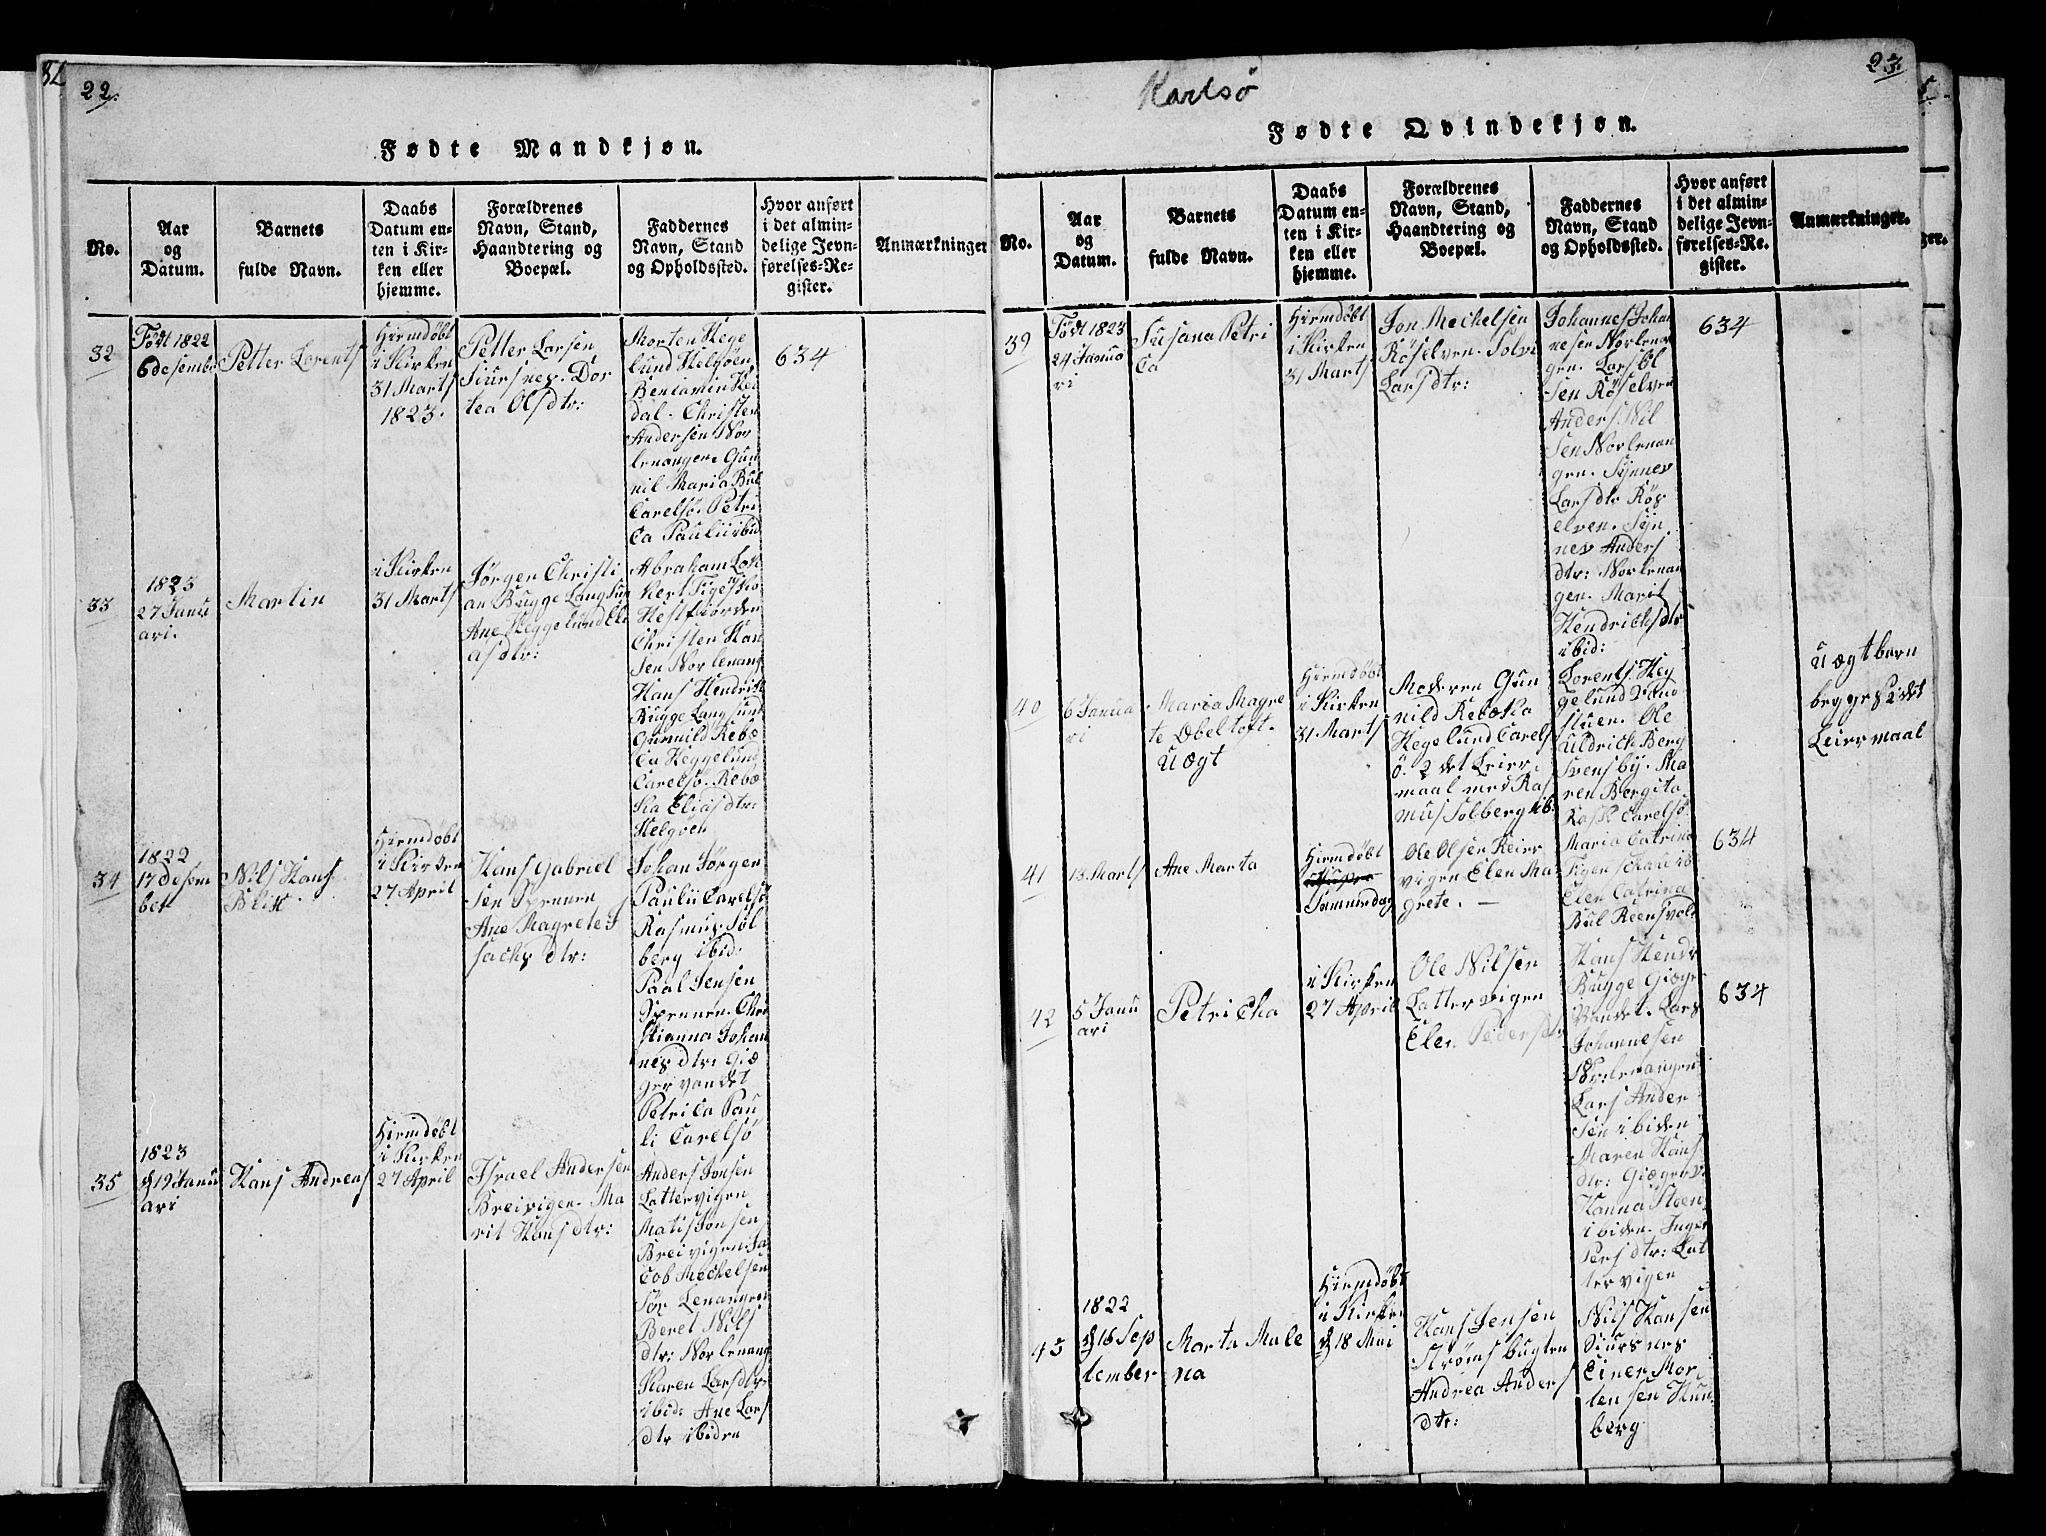 22.
Fødte Mandkjøn.
No.
Aar
og
Datum.
Barnets
fulde Navn.
Daabs
Datum en-
ten i Kir-
ken eller
hjemme.
Forældrenes
Navn, Stand,
Haandtering og
Boepæl.
Faddernes
Navn, Stand
og Opholdssted.
Hvor anført
i det almin-
delige Jevn-
førelses-Re-
gister.
Anmærkninger
32
Født 1822
6 desembr
Petter Lorents
Hiemdøbt
i Kirken
31 Marts
1823.
Petter Larsen
Siursnes. Dor
tea Olsdtr:
Morten Hege
lund Helgøen
Benjamin Hei
dal. Christen
Andersen Nor
lenangen. Gun
nil Maria Bul
Carelsø. Petri
ca Paulii ibid
634
33
1823
27 Janu
ari.
Martin
i Kirken
31 Marts
Jørgen Christi
an Bugge Langsun
Ane Heggelund Eli
asdtr:
Abraham Lok
kert
Hestfiorden
Christen Han
sen Norlenang
Hans Hendrik
Bugge Langsund
Gunnild Rebe
ca Heggelund
Carelsø. Rebæ
ka Eliasdtr:
Helgøen
34
1822
17 Desem
ber
Nils Hans
Blix
Hiemdøbt
i Kirken
27 April
Hans Gabriel
sen Spennen
Ane Magrete I
sachs dtr:
Johan Jørgen
Paulii Carelsø
Rasmus Sol
berg ibid:
Paal Jensen
Spennen. Chri
stianna Johan
nes dtr: Giæ
ger vandet
Petrica Pau
li Carelsø
35
1823
d 19 Janu
ari
Hans Andreas
Hiemdøbt
i Kirken
27 April
Israel Andersen
Breivigen. Ma
rit Hans dtr:
Anders Jonsen
Lattervigen
Matis Jonsen
Breivigen. Ja
cob Mechelsen
Sør Lenangen
Beret Nils
dtr: Norlenang
Karen Larsdtr
ibid: Ane Lars
dtr ibiden
Karlsø
23.
Fødte Qvindekjøn.
No.
Aar
og
Datum.
Barnets
fulde Navn.
Daabs
Datum en-
ten i Kir-
ken eller
hjemme.
Forældrenes
Navn, Stand,
Haandtering og
Boepæl.
Faddernes
Navn, Stand
og Opholdssted.
Hvor anført
i det almin-
delige Jevn-
førelses-Re-
gister.
Anmærkninger.
39
Født 1823
24 Janua
ri
Susana Petri
ca
Hiemdøbt
i Kirken
31 Marts
Jon Mechelsen
Røselven. Solvi
Larsdtr:
Johannes Johan
nesen Norlenan
gen. Lars Ol
sen Røselven
Anders Nil
sen Norlenan
gen. Synnev
Larsdtr Røs
elven. Syn
nev Anders
dtr: Norlenan
gen. Marit
Hendrichsdtr
ibid:
634
40
6 Janua
ri
Maria Magre
te Ebeltoft.
Uægt
Hiemdøbt
i Kirken
31 Marts
Moderen Gun
nild Rebæka
Hegelund Carels
ø. 2det Leier
maal med Ras
mus Solberg ib:
Lorents Heg
gelund
stuen. Ole
Uldrich Berg
Svensby. Ma
ren Bergita
Rask Carelsø
Uægt barn
begges 2det
Leiermaal
41
13 Marts
Ane Marta
Hiemdøbt
Sammedag
Ole Olsen Reier
vigen Elen Ma
grete. —
Maria Catrina
Figenschau ib
Elen Catrina
Bul Reensvold
634
42
5 Janu
ari
Petricka
i Kirken
27 April
Ole Nilsen
Lattervigen
Elen Peders dtr
Hans Hendr
Bugge Giæger
Vandet. Lars
Johannesen
Norlenangen
Lars Ander
sen ibiden
Maren Hans
dtr: Giæger v
Hanna Steen
ibiden. Inger
Pers dtr: Lat
tervigen
634
43
1822
d 16 Sep
tember
Marta Male
na
Hiemdøbt
i Kirken
d 18 Mai
Hans Jensen
Strømsbugten
Andrea Anders
dtr:
Nils Hansen
Siursnes
Einer Mor
tensen Hun
berg